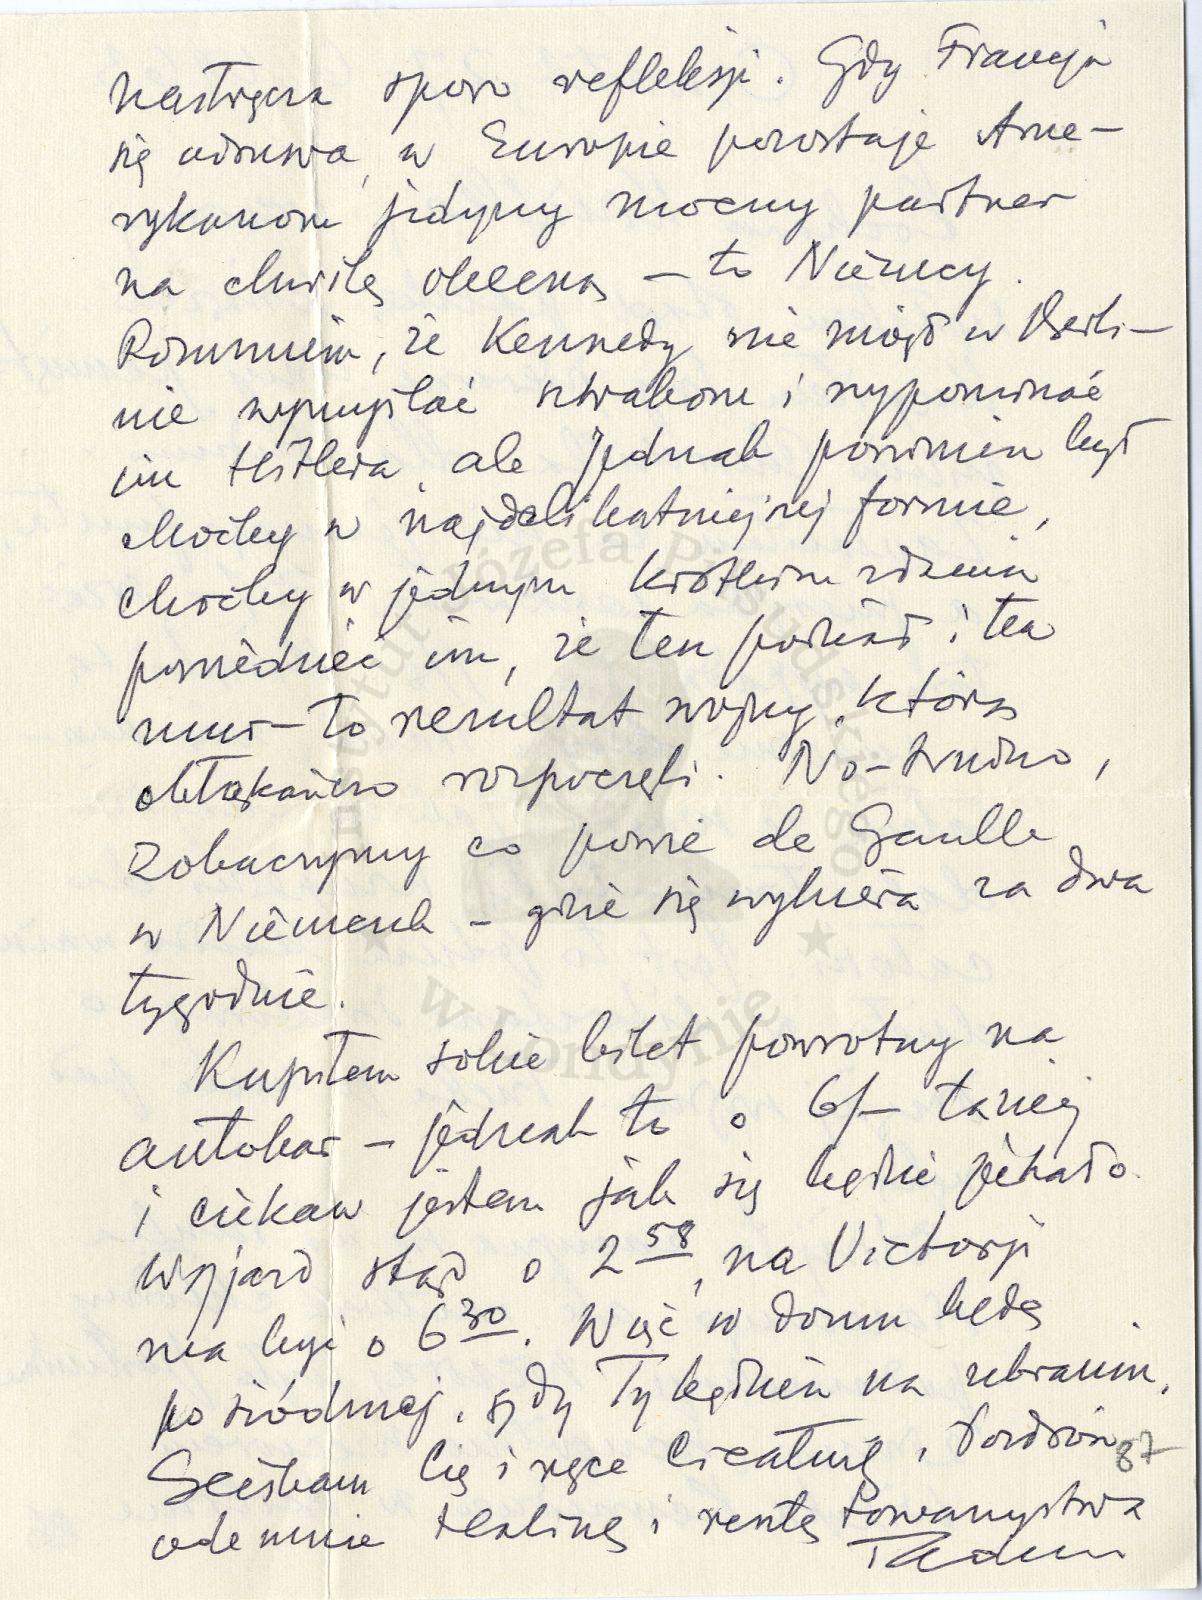 nastręcza sporo refleksji. Gdy Francja
się odsuwa, w Europie pozostaje Ame-
rykanom jedyny mocny partner
na chwilę obecną – to Niemcy.
Rozumiem, że Kennedy nie mógł w Berli-
nie wymyślać szwabom i wypominać
im Hitlera, ale jednak powinien był
choćby w najdelikatniejszej formie,
choćby w jednym krótkim zdaniu
powiedzieć im, że ten podział i ten
mur – to rezultat wojny, którą
obłąkańczo rozpoczęli. No – trudno,
zobaczymy co powie de Gaulle
w Niemczech – gdzie się wybiera za dwa
tygodnie.
Kupiłem sobie bilet powrotny na
autobus – jednak to o 6/– taniej
i ciekaw jestem jak się będzie jechało.
Wyjazd stąd o 2 58, na Victorji
ma być o 6 30. Więc w domu będę
po siódmej, gdy Ty będziesz na zebraniu.
Ściskam Cię i ręce całuję, pozdrów
ode mnie Halinę i resztę towarzystwa
87
Instytut Józefa Piłsudskiego
w Londynie